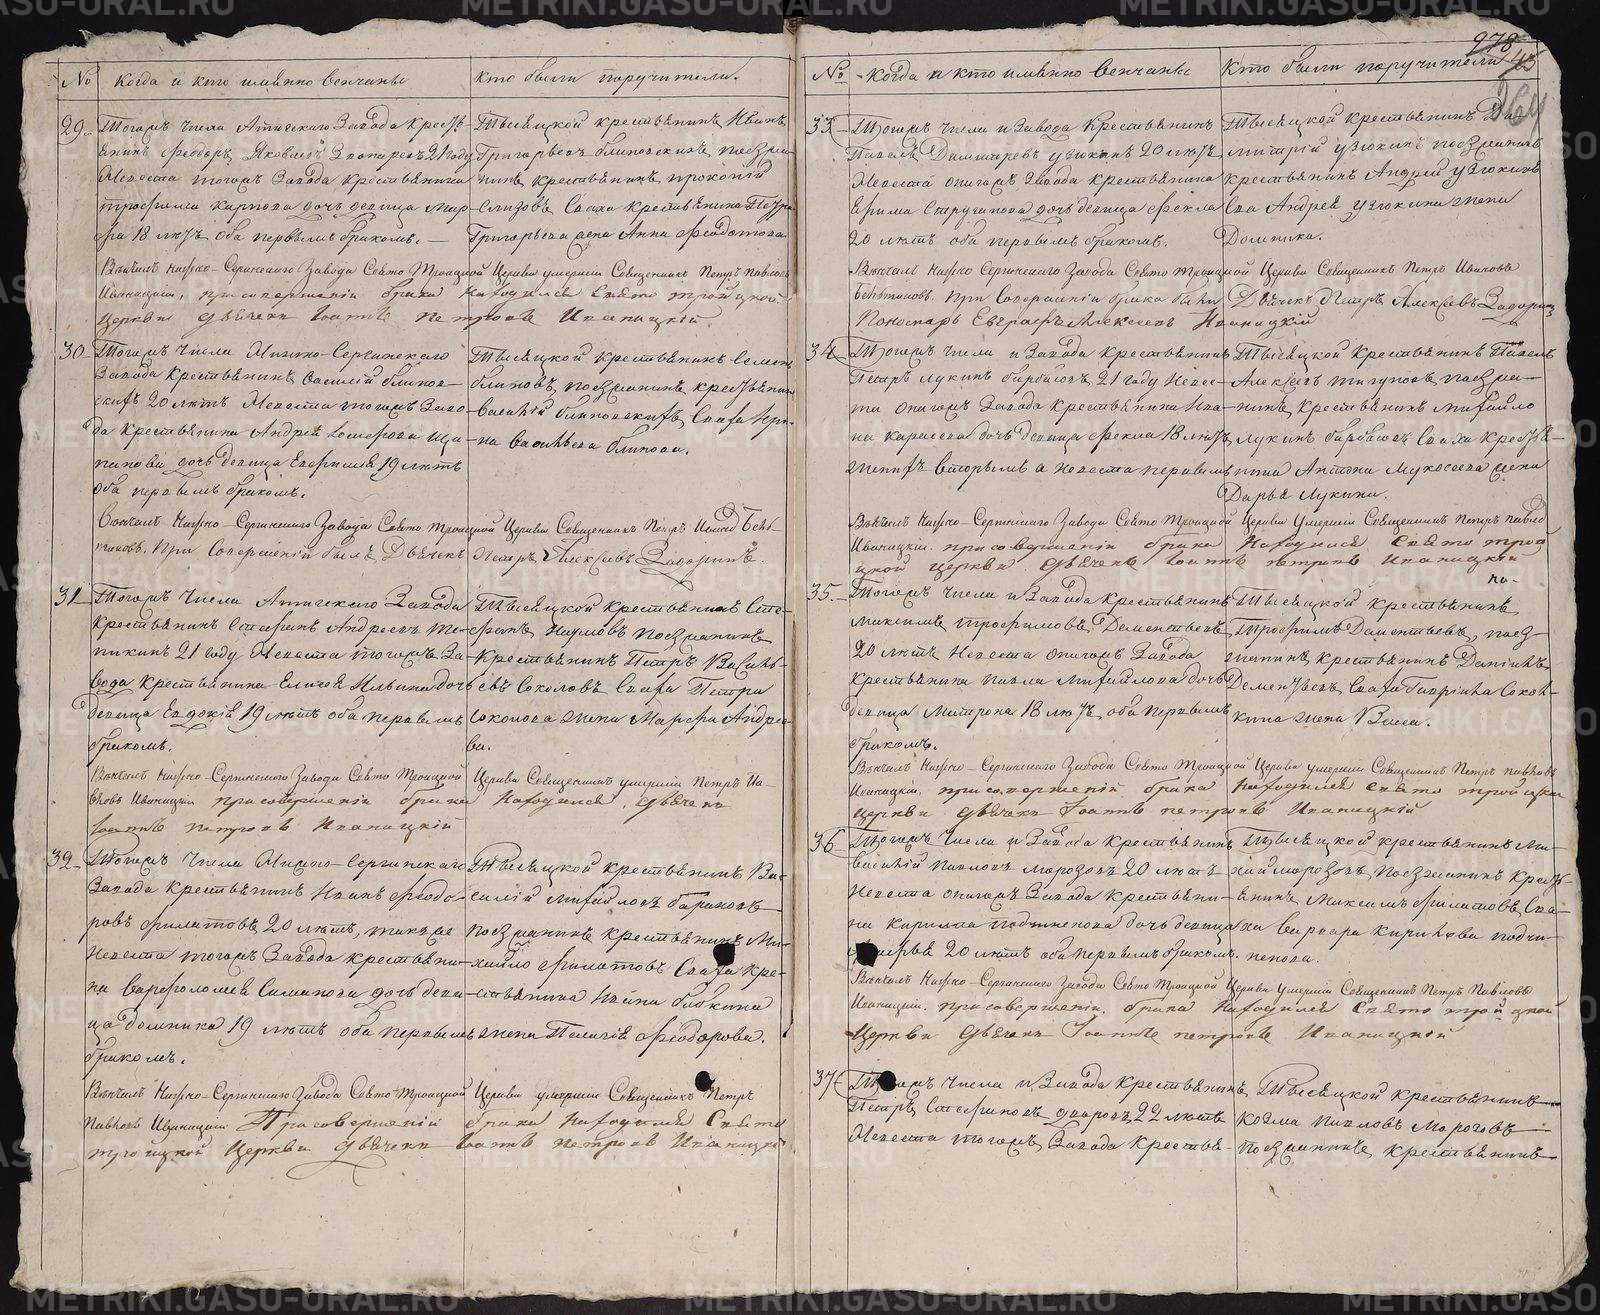 № Когда и кто имѣнно венчаны
кто были поручители.
29. Тогожъ числа Атигскаго Завода Кресть-
янинъ Феодоръ Яковлевъ 21 году
Невеста тогожъ Завода крестьянина
трофима карпова дочь девица
18 лѣтъ оба первымъ бракомъ.
Тысяцкой крестьянинъ Иванъ
Григорьевъ блиновскихъ, поезжа-
нинъ, крестьянинъ, прокопій
Сваха крестьянина Петра
Григорьева жена Анна Феодотова
Вѣнчалъ Нижно-Сергинскаго Завода Свято Троицкой Церкви умершій Священникъ Петръ Павловъ
Иваницкій, при совершеніи брака находился Свято троицкой
Церкви дьячекъ Іоаннъ петровъ Иваницкій
30. Тогожъ числа Нижно-Сергинскаго
Завода крестьянинъ Василій блинов-
скихъ 20 лѣтъ Невеста тогожъ Заво-
да крестьянина Андрея
дочь девица Евфимія 19 лѣтъ
оба первымъ бракомъ.
Тысяцкой крестьянинъ Семенъ
блиновъ, поезжанинъ, крестьянинъ
Василій блиновскихъ, Сваха Ири-
на Васильева блинова.
Вѣнчалъ Нижно-Сергинскаго Завода Свято Троицкой Церкви Священникъ Петръ
При Совершеніи былъ Дьячекъ Петръ Алексѣевъ
31. Тогожъ Числа Атигскаго Завода
крестьянинъ Стефанъ Андреевъ
21 году Невеста тогожъ За-
вода крестьянина Елисея Ильина дочь
девица Евдокія 19 лѣтъ оба первымъ
бракомъ.
Тысяцкой крестьянинъ Сте-
фанъ, Наумовъ поезжанинъ
крестьянинъ Петръ Василь-
евъ Соколовъ Сваха Петра
Соколова жена Марфа Андрее-
ва.
Вѣнчалъ Нижно-Сергинскаго Завода Свято Троицкой Церкви Священникъ умершій Петръ Па-
вловъ Иваницкій при совершеніи брака находился, дьячекъ
Іоаннъ петровъ Иваницкій
32. Тогожъ Числа Нижно-Сергинскаго
Завода крестьянинъ Иванъ Феодо-
ровъ филатовъ 20 лѣтъ, также
Невеста тогожъ Завода крестьяни-
на варфоломея Симанова дочь деви-
ца домника 19 лѣтъ оба первымъ
бракомъ.
Тысяцкой крестьянинъ Ва-
силій михайловъ бариновъ
поезжанинъ крестьянинъ Ми-
хайло филатовъ Сваха кре-
стьянина Ивана бабкина
жена Пелагія Феодорова.
Вѣнчалъ Нижно-Сергинскаго Завода Свято Троицкой Церкви умершій Священникъ Петръ
Павловъ Иваницкій При совершеніи брака находился Свято
троицкой Церкви дьячекъ Іоаннъ петровъ Иваницкій
978
43
264
№ Когда и кто имѣнно венчаны
Кто были поручители
33. Тогожъ числа и Завода Крестьянинъ
Павелъ Димитревъ узюкинъ 20 лѣтъ
Невеста онагожъ Завода крестьянина
Ефима Стругинова дочь девица фекла
20 лѣтъ оба первымъ бракомъ.
Тысяцкой крестьянинъ Ди-
митрій узюкинъ поезжанинъ
крестьянинъ Андрей узюкинъ
Сва Андрея узюкина жена
Домника.
Вѣнчалъ Нижно Сергинскаго Завода Свято Троицкой Церкви Священникъ Петръ Ивановъ
При Совершеніи брака были Дьячекъ Петръ Алексѣевъ
Пономарь Евграфъ Алексеевъ Иваницкій
34. Тогожъ числа и Завода крестьянинъ
Петръ лукинъ 21 году Невес-
та онагожъ Завода крестьянина Ива-
на дочь девица фекла 18 лѣтъ
женихъ вторымъ а невеста первымъ
Тысяцкой крестьянинъ Павелъ
Алексѣевъ поезжа-
нинъ крестьянинъ михайло
лукинъ Сваха кресть-
янина Антона жена
Дарья Лукина.
Вѣнчалъ Нижно-Сергинскаго Завода Свято Троицкой Церкви Умершій Священникъ Петръ Павловъ
Иваницкій. при совершеніи брака Находился Свято трои
цкой церкви дьячекъ Іоаннъ петровъ Иваницкій
35. Тогожъ числа и Завода крестьянинъ
Максимъ, трофимовъ Дементьевъ
20 лѣтъ Невеста онагожъ Завода
крестьянина павла михайлова дочь
девица Матрона 18 лѣтъ оба первымъ
бракомъ.
Тысяцкой крестьянинъ
Трофимъ Дементьевъ, поез-
жанинъ, крестьянинъ Данійлъ
Дементьевъ, Сваха Гавріила Соко-
кина жена Васса.
Вѣнчалъ Нижно-Сергинскаго Завода Свято Троицкой Церкви умершій Священникъ Петръ Павловъ
Иваницкій, при совершеніи брака находился Свято троицкой
церкви дьячекъ Іоаннъ петровъ Иваницкій
36. Тогожъ Числа и Завода крестьянинъ
василій Павловъ морозовъ 20 лѣтъ
Невеста онагожъ Завода крестьяни-
на кирилла дочь девица
20 лѣтъ оба первымъ бракомъ.
Тысяцкой крестьянинъ Ми-
хай морозовъ, Поезжанинъ кресть-
янинъ, Максимъ филатовъ, Сва-
ха варвара Кирилова
Вѣнчалъ Нижно-Сергинскаго Завода Свято Троицкой Церкви умершій Священникъ Петръ Павловъ
Иваницкій. при совершеніи брака Находился Свято троицкой
Церкви дьячекъ Іоаннъ петровъ Иваницкой
37. Тогожъ числа и Завода крестьянинъ
Петръ, Стефановъ 22 лѣтъ
Невеста тогожъ Завода крестья-
Тысяцкой крестьянинъ
Козма павловъ Морозовъ
поезжанинъ, крестьянинъ
METRIKI.GASU-URAL.RU